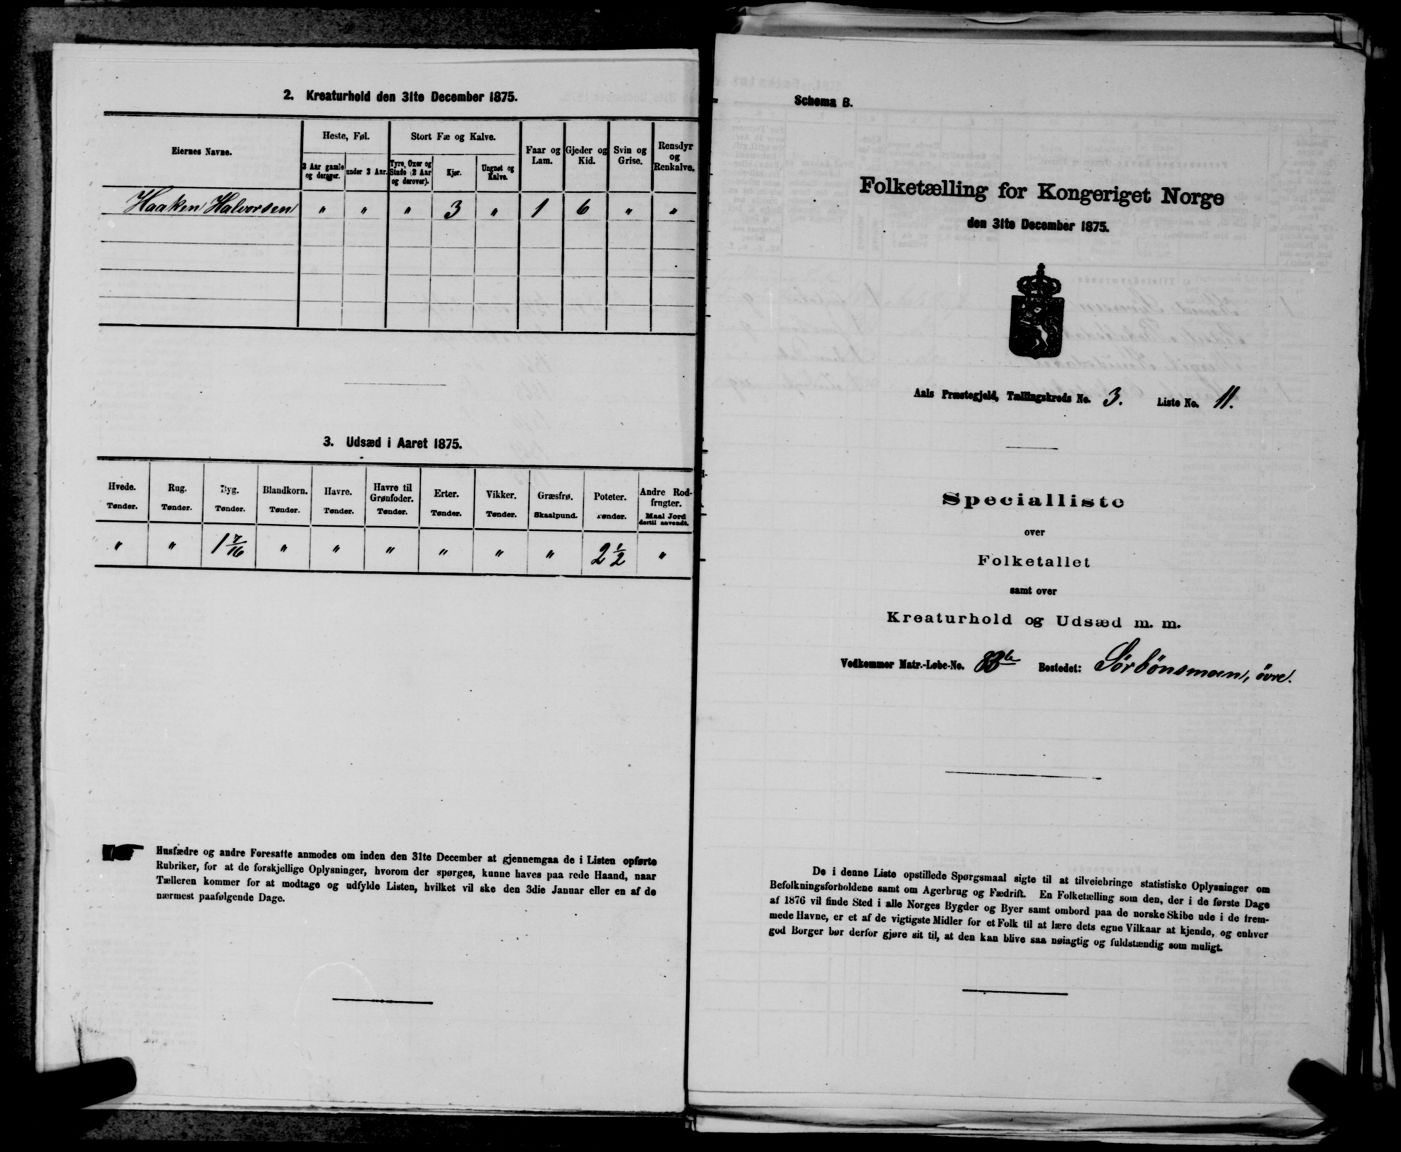 2. Kreaturhold den 31te December 1875.
Eiernes Navne.
Heste, Føl.
Stort Fæ og Kalve.
Faar og Lam.
Gjeder og Kid.
Svin og Grise.
Rensdyr og Renkalve.
3 Aar gamle og derover.
under 3 Aar.
Tyre, Oxer og Stude (2 Aar og derover).
Kjør.
Ungnet og Kalve.
Haaken Halvorsen " " " 3 " 1 6 " "
3. Udsæd i Aaret 1875.
Hvede. Rug. Byg. Blandkorn. Havre. Havre til Grønfoder. Erter. Vikker. Græsfrø. Poteter. Andre Rodfrugter.
Tønder. Tønder. Tønder. Tønder. Tønder. Tønder. Tønder. Tønder. Skaalpund. Tønder. Maal Jord dertil anvendt.
" " 1 7/16 " " " " " " 2 1/2 "
Husfædre og andre Foresatte anmodes om inden den 31te December at gjennemgaa de i Listen opførte
Rubriker, for at de forskjellige Oplysninger, hvorom der spørges, kunne haves paa rede Haand, naar
Tælleren kommer for at modtage og udfylde Listen, hvilket vil ske den 3die Januar eller en af de
nærmest paafølgende Dage.
Schema B.
Folketælling for Kongeriget Norge
den 31te December 1875.
Aals Præstegjeld, Tællingskreds No. 3. Liste No. 11.
Specialliste
over
Folketallet
samt over
Kreaturhold og Udsæd m. m.
Vedkommer Matr.-Løbe-No. 83b Bostedet: Sørbønsmoen, øvre.
De i denne Liste opstillede Spørgsmaal sigte til at tilveiebringe statistiske Oplysninger om
Befolkningsforholdene samt om Agerbrug og Fædrift. En Folketælling som den, der i de første Dage
af 1876 vil finde Sted i alle Norges Bygder og Byer samt ombord paa de norske Skibe ude i de frem-
mede Havne, er et af de vigtigste Midler for et Folk til at lære dets egne Vilkaar at kjende, og enhver
god Borger bør derfor gjøre sit til, at den kan blive saa nøiagtig og fuldstændig som muligt.